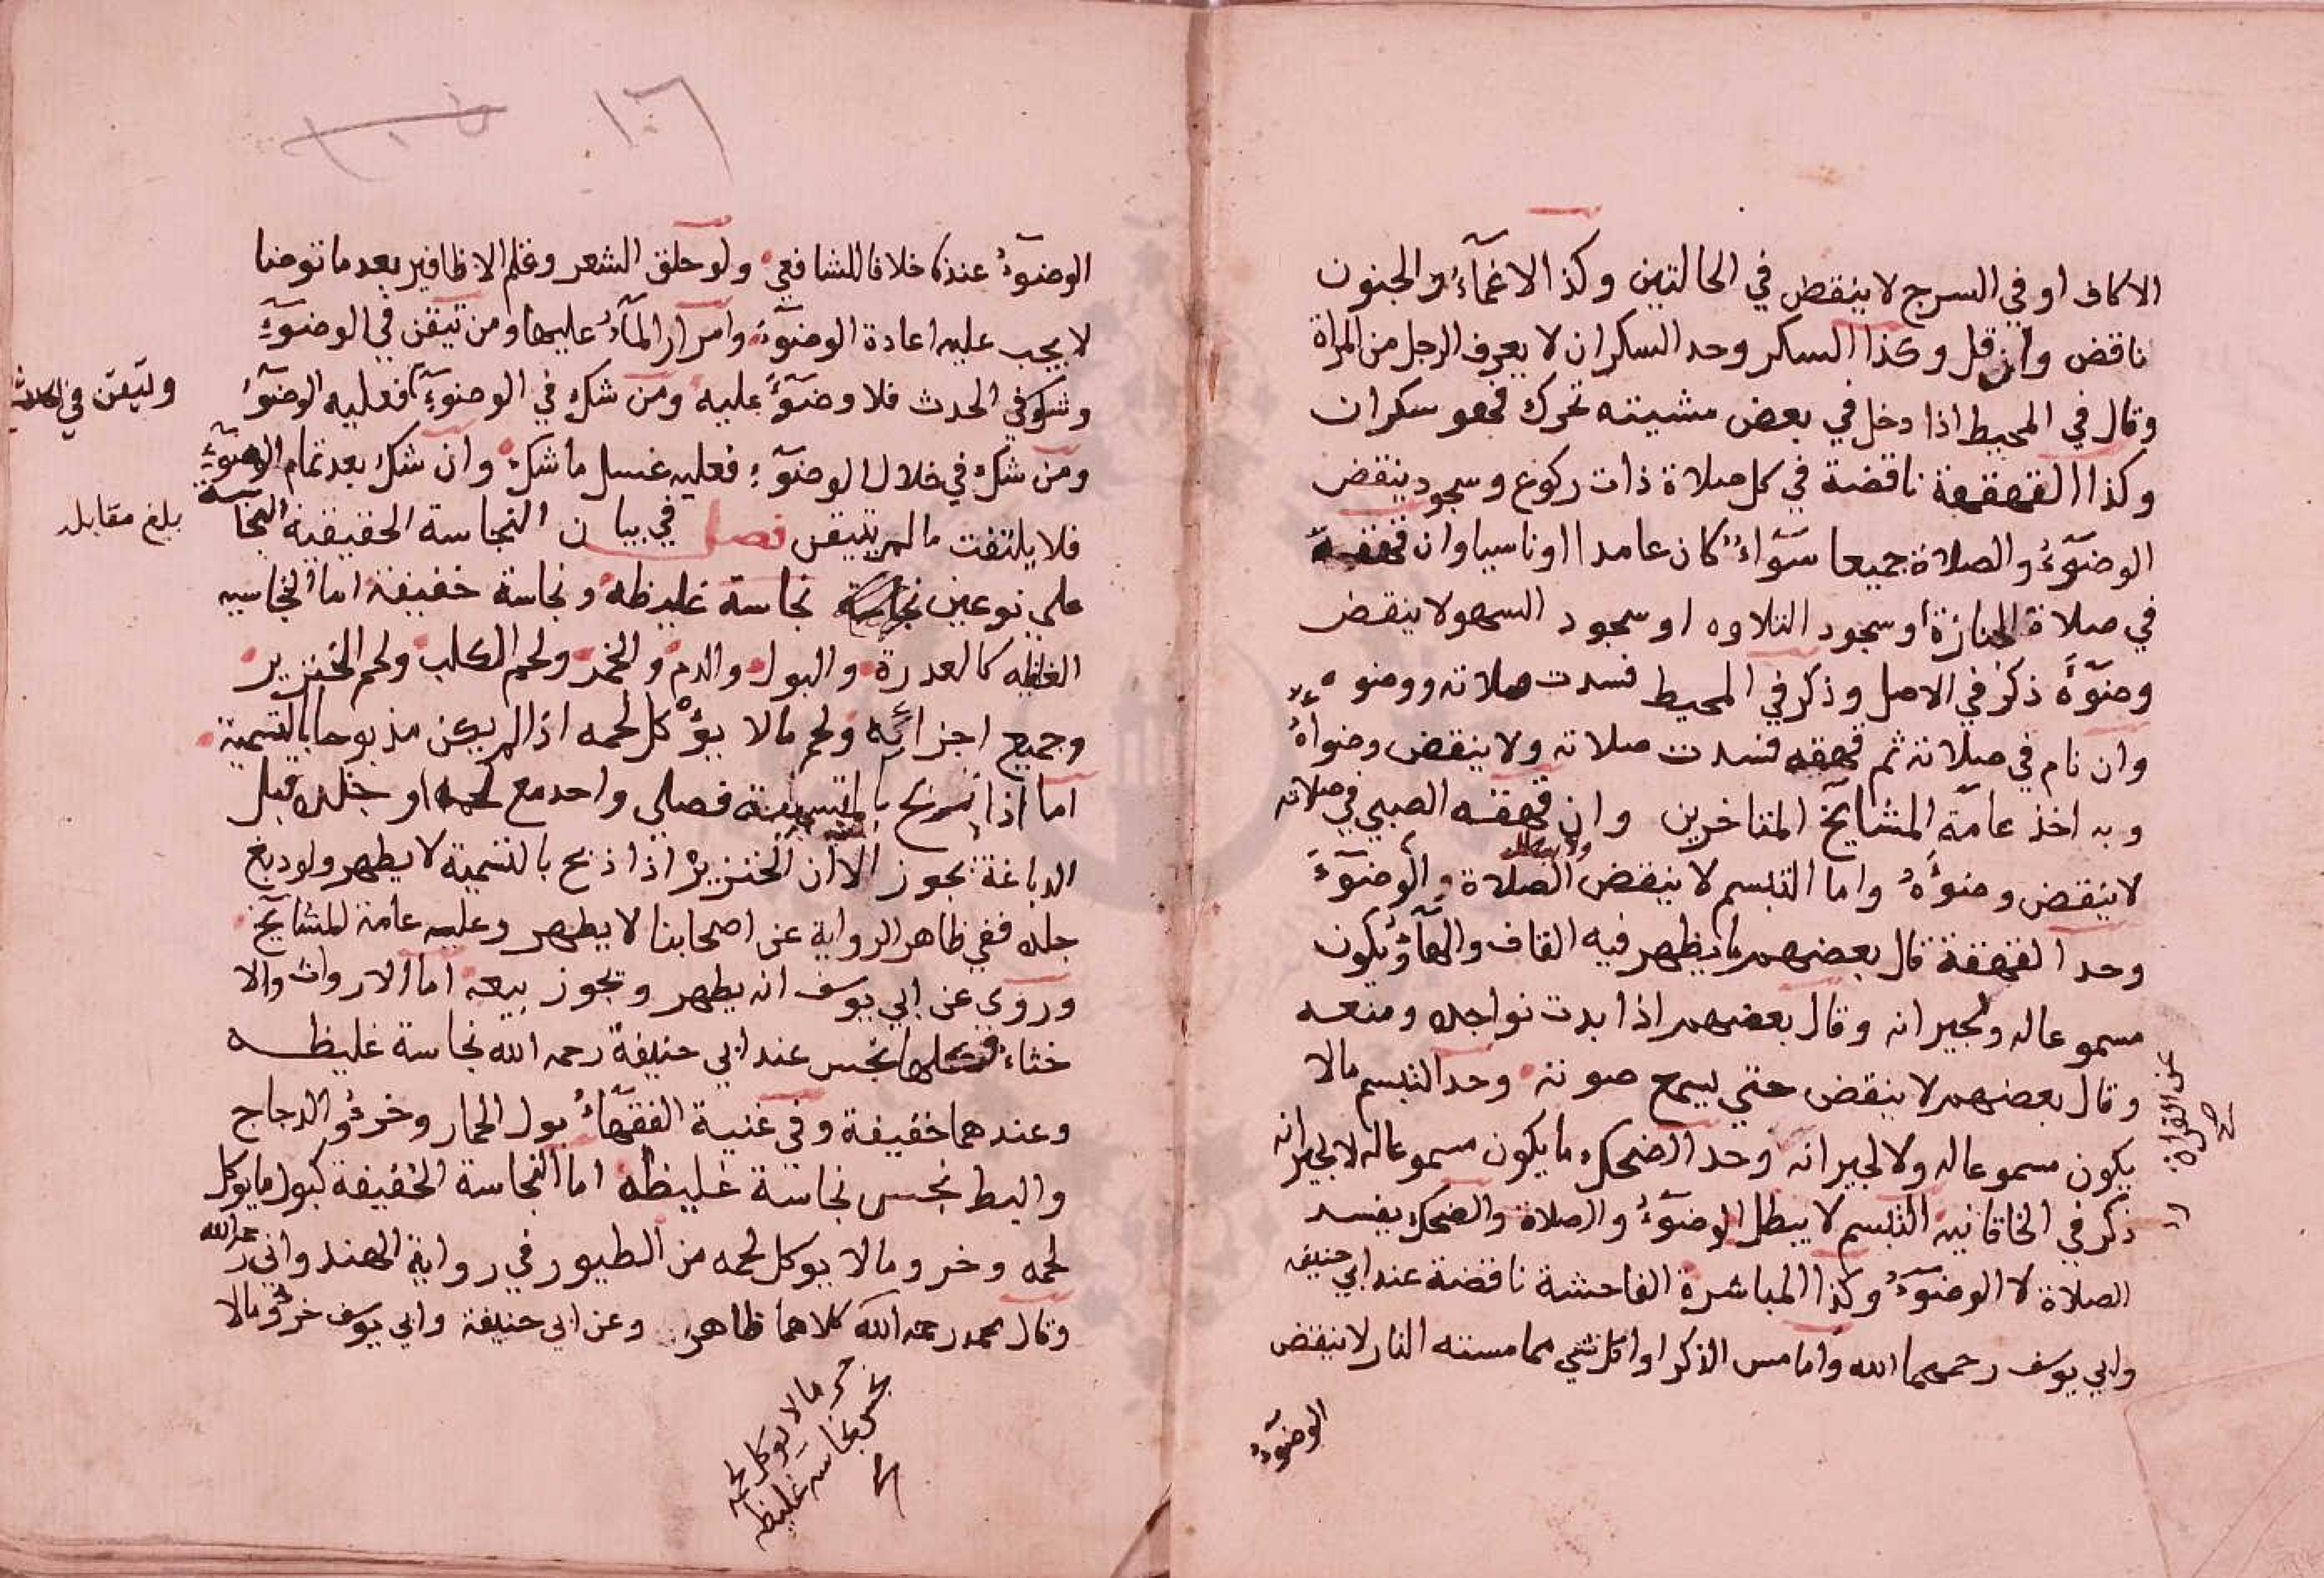 الاكاف او في السرج لا ينقض في الحالتين وكذا الاغمآء والجنون
ناقض وان قل وكذا السكر وحد السكران لا يعرف الرجل من المراة
وقال في المحيط اذا دخل في بعض مشيته تحرك فهو سكران
وكذا القهقهة ناقضة في كل صلاة ذات ركوع وسجود ينقض
الوضوٓء والصلاة جميعا سوٓاء كان عامدا او ناسيا وان قهقهة
في صلاة الجنازة او سجود التلاوه او سجود السهو لا ينقض
وضوٓءه ذكر في الاصل وذكر في المحيط فسدت صلاته ووضوءه
وان نام في صلاته ثم قهقه فسدت صلاته ولا ينقض وضواه
وبه اخذ عامة المشايخ المتاخرين وان قهقه الصبي في صلاته
لا ينقض وضوءه واما التبسم لا ينقض الصلاة والوضوٓء
وحد القهقهة قال بعضهم ما يظهر فيه القاف والهآء ويكون
مسموعا له ولجيرانه وقال بعضهم اذا بدت نواجده ومنعه
عن القراة صح
وقال بعضهم لا ينقض حتي يسمع صوته وحد التبسم مالا
يكون مسموعا له ولا لجيرانه وحد الضحك ما يكون مسموعا له لا لجيرانه
ذكر في الخاقانيه التبسم لا يبطل الوضوٓء والصلاة والضحك يفسد
الصلاة لا الوضوٓء وكذا المباشرة الفاحشة ناقضة عند ابي حنيفه
وابي يوسف رحمهما الله واما مس الذكر او اكل شي مما مسته النار لا ينقض
الوضوٓء
١٠٦
الوضوٓء عندنا خلافا للشافعي ولو حلق الشعر وقلم الاظافير بعد ما توضا
لا يجب عليه اعادة الوضوٓء وامرار المآء عليها ومن تيقن في الوضوٓء
وشك في الحدث فلا وضوٓء عليه ومن شك في الوضوٓء فعليه الوضوٓء
وتيقن في الحدث
ومن شك في خلال الوضوٓء فعليه غسل ما شك وان شك بعد تمام الوضوٓء
فلا يلتفت مالم يتيقن فصل في بيان النجاسة الحقيقية النجاسة
بلغ مقابله
علي نوعين نجاسة غليظه ونجاسة خفيفة اما النجاسه
الغلظه كالعدرة والبول والدم والخمر ولحم الكلب ولحم الخنزير
وجميع اجزائه ولحم مالا يؤكل لحمه اذا لم يكن مذبوحا بالتسمية
اما اذا ذبح بالتسمية فصلي واحد مع لحمه او جلده قبل
الدباغة يجوز الا ان الخنزير اذا ذبح بالتسمية لا يطهر ولو دبغ
جلده ففي ظاهر الرواية عن اصحابنا لا يطهر وعليه عامة المشايخ
وروي عن ابي يوسف انه يطهر ويجوز بيعه اما الارواث والا
خثاء فكلها نجس عند ابي حنيفة رحمه الله نجاسة غليظه
وعندهما خفيفة وفي غنية الفقهآء بول الحمار وخرؤ الدجاج
والبط نجس نجاسة غليظه اما النجاسة الخفيفة كبول ما يوكل
لحمه وخرو مالا يوكل لحمه من الطيور في رواية الهندواني رحمه الله
وقال محمد رحمه الله كلاهما طاهر وعن ابي حنيفة وابي يوسف خرؤ مالا
خر مالا يوكل لحمه
نجس نجاسه غليظه